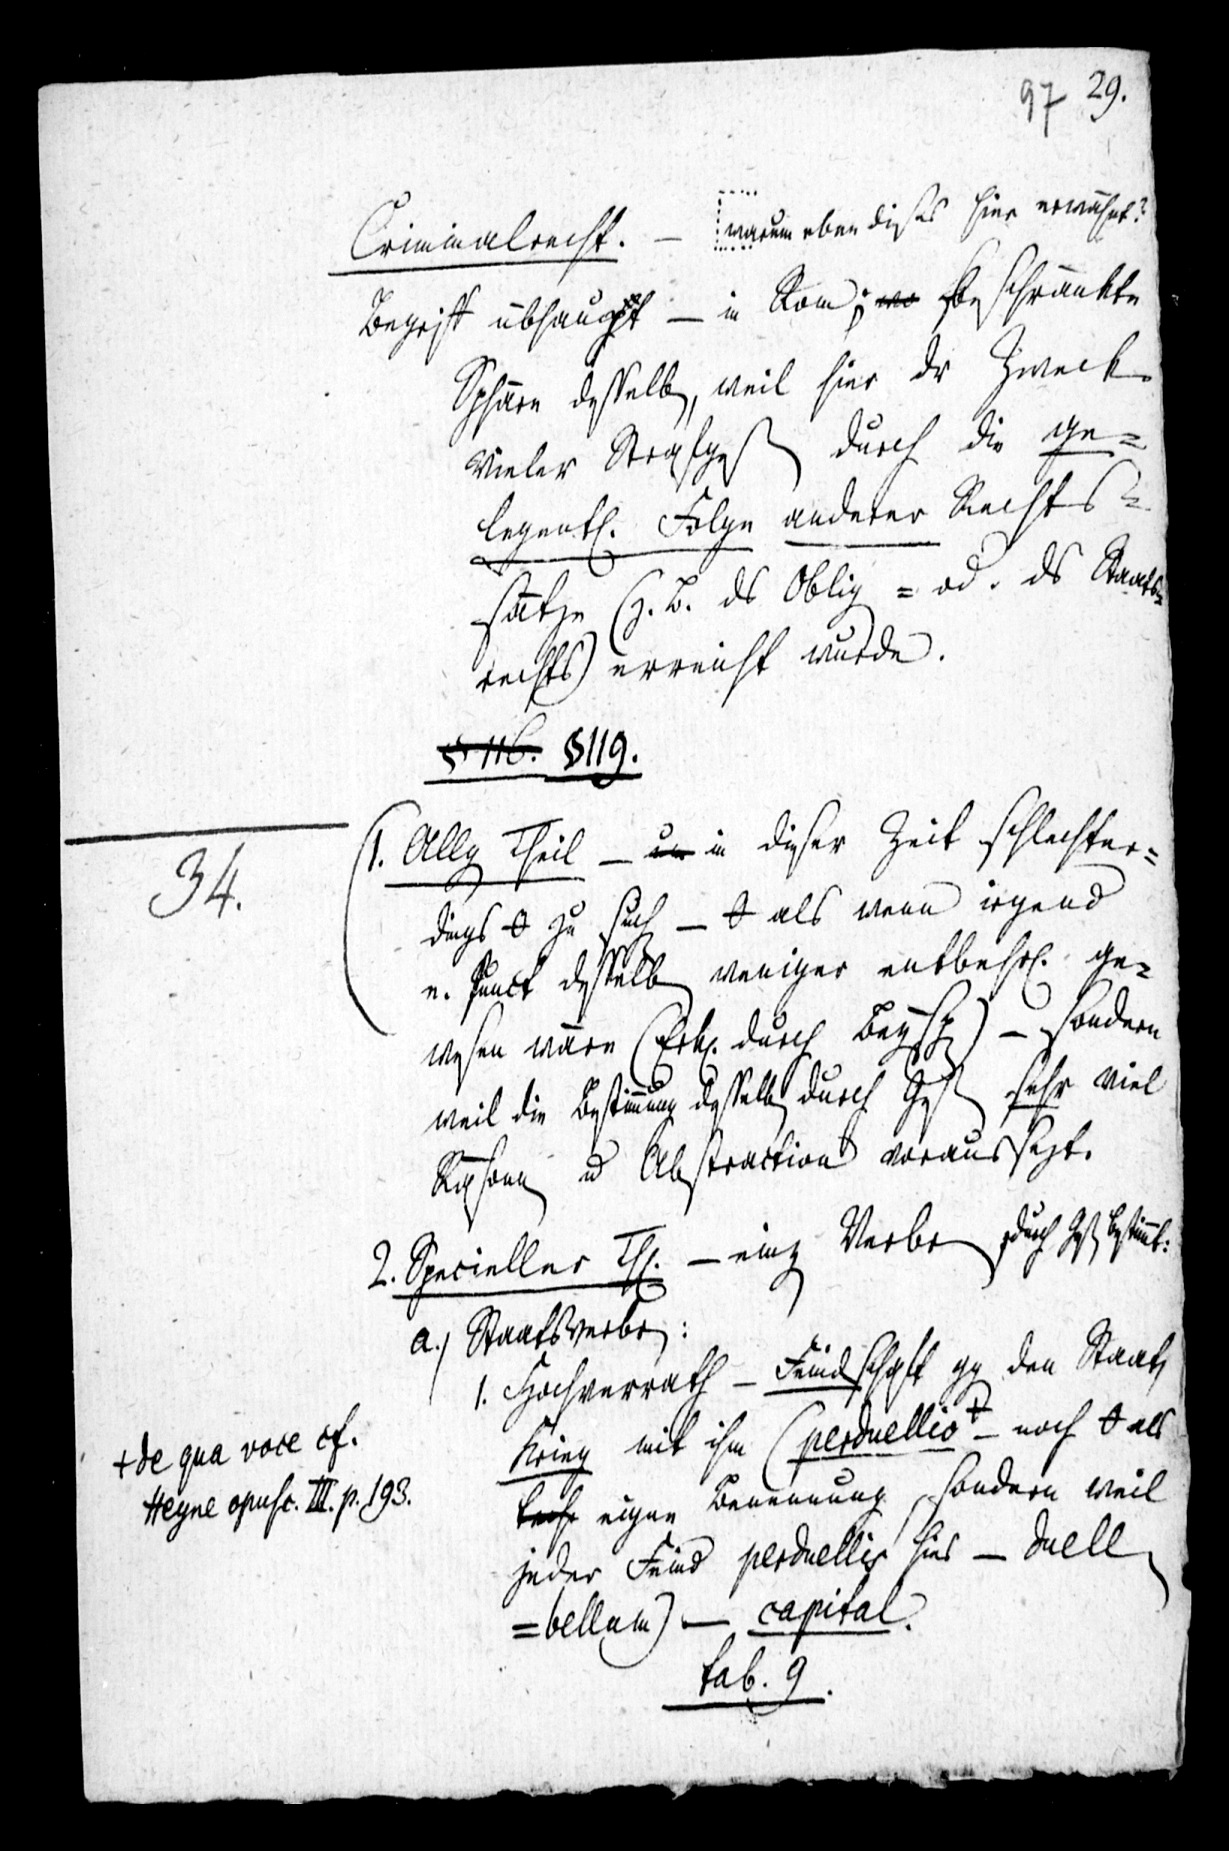 97 29.
Criminalrecht. — warum eben dieses hier erwähnt?
Begriff übhaupt — in Rom; wo beschränkte
Sphäre desselb, weil hier dr Zweck
vieler Strafges durch die ge=
legentl. Folge anderer Rechts=
sätze (z. B. ds Oblig = od. ds Staats=
rechts) erreicht wurde.
§ 116. § 119.
34.
(1. Allg Theil — in dieser Zeit schlechter=
dings zu such — als wenn irgend
e. Punct desselb weniger entbehrl. ge=
wesen wäre (Erkl. durch Beysp) — sondern
weil die Bestimmung desselb durch Ges sehr viel
Räsonn u Abstraction voraussezt.
2. Specieller Th. — einz Verbr durch Ges bestimt:
a.) Staatsverbr:
1. Hochverrath — Feindschaft gg den Staat,
Krieg mit ihm (perduellio + — noch als
eigene Benennung, sondern weil
jeder Feind perduellis hies — duell
= bellum) — capital.
tab. 9.
+ de qua voce cf.
Heyne opusc. III. p. 193.